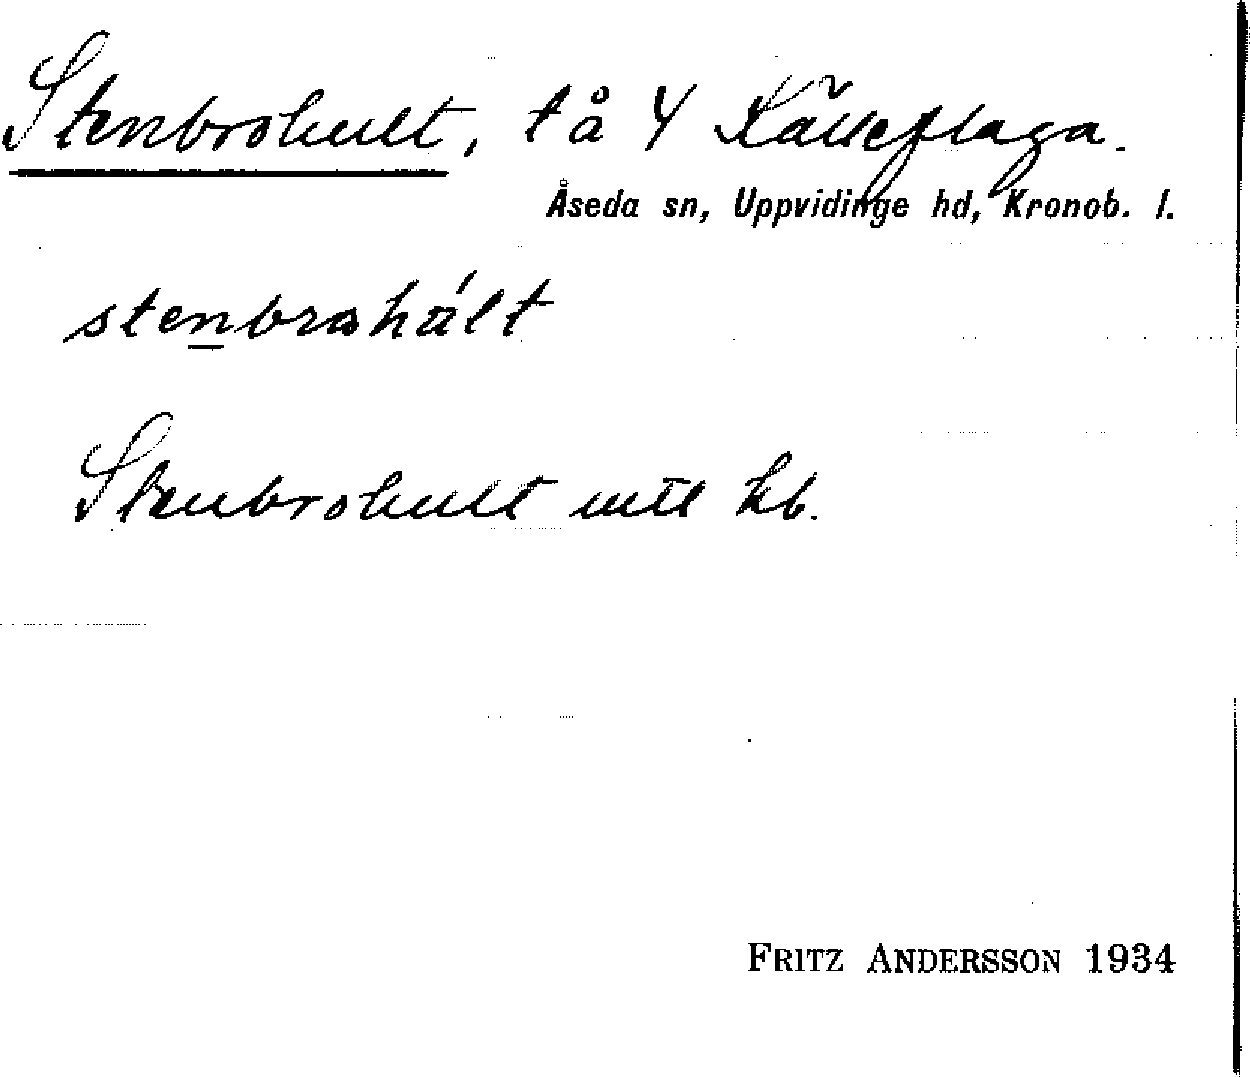 Stenbrohult, tå 4 Källeflaga.
Åseda sn, Uppvidinge hd, Kronob. l.
stenbrohált
Stenbrohult mtl kb.
FRITZ ANDERSSON 1934